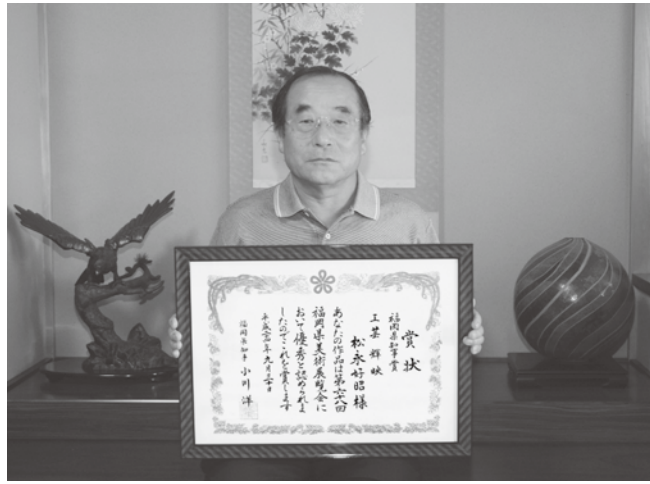 賞状
福岡県知事賞
工芸 輝映
松永好昭様
あなたの作品は第六八回
福岡県美術展覧会に
おいて優秀と認められま
したのでこれを賞します
福岡県知事 小川 洋